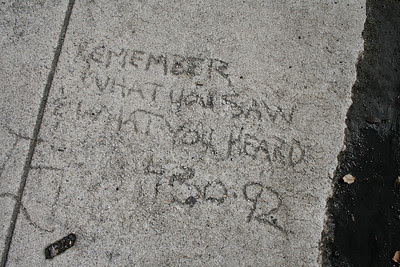 REMEMBER
WHAT YOU SAW
& WHAT YOU HEARD
4·30·92